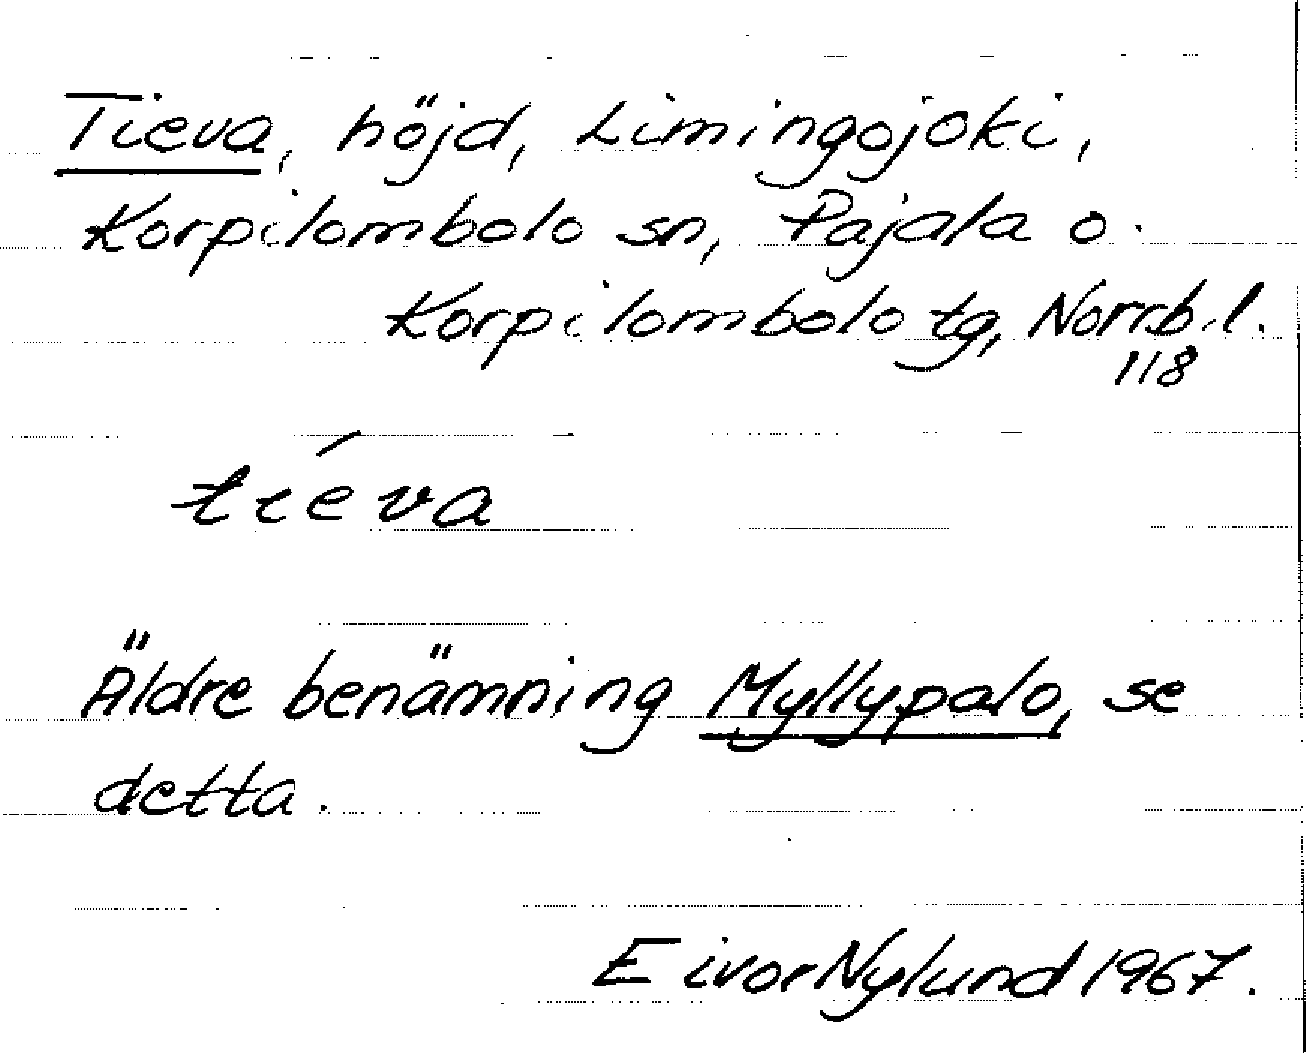 Tieva, höjd, Limingojoki,
Korpilombolo sn, Pajala o.
Korpilombolo tg, Norrb. l.
118
tiéva
Äldre benämning Myllypalo, se
detta.
Eivor Nylund 1967.